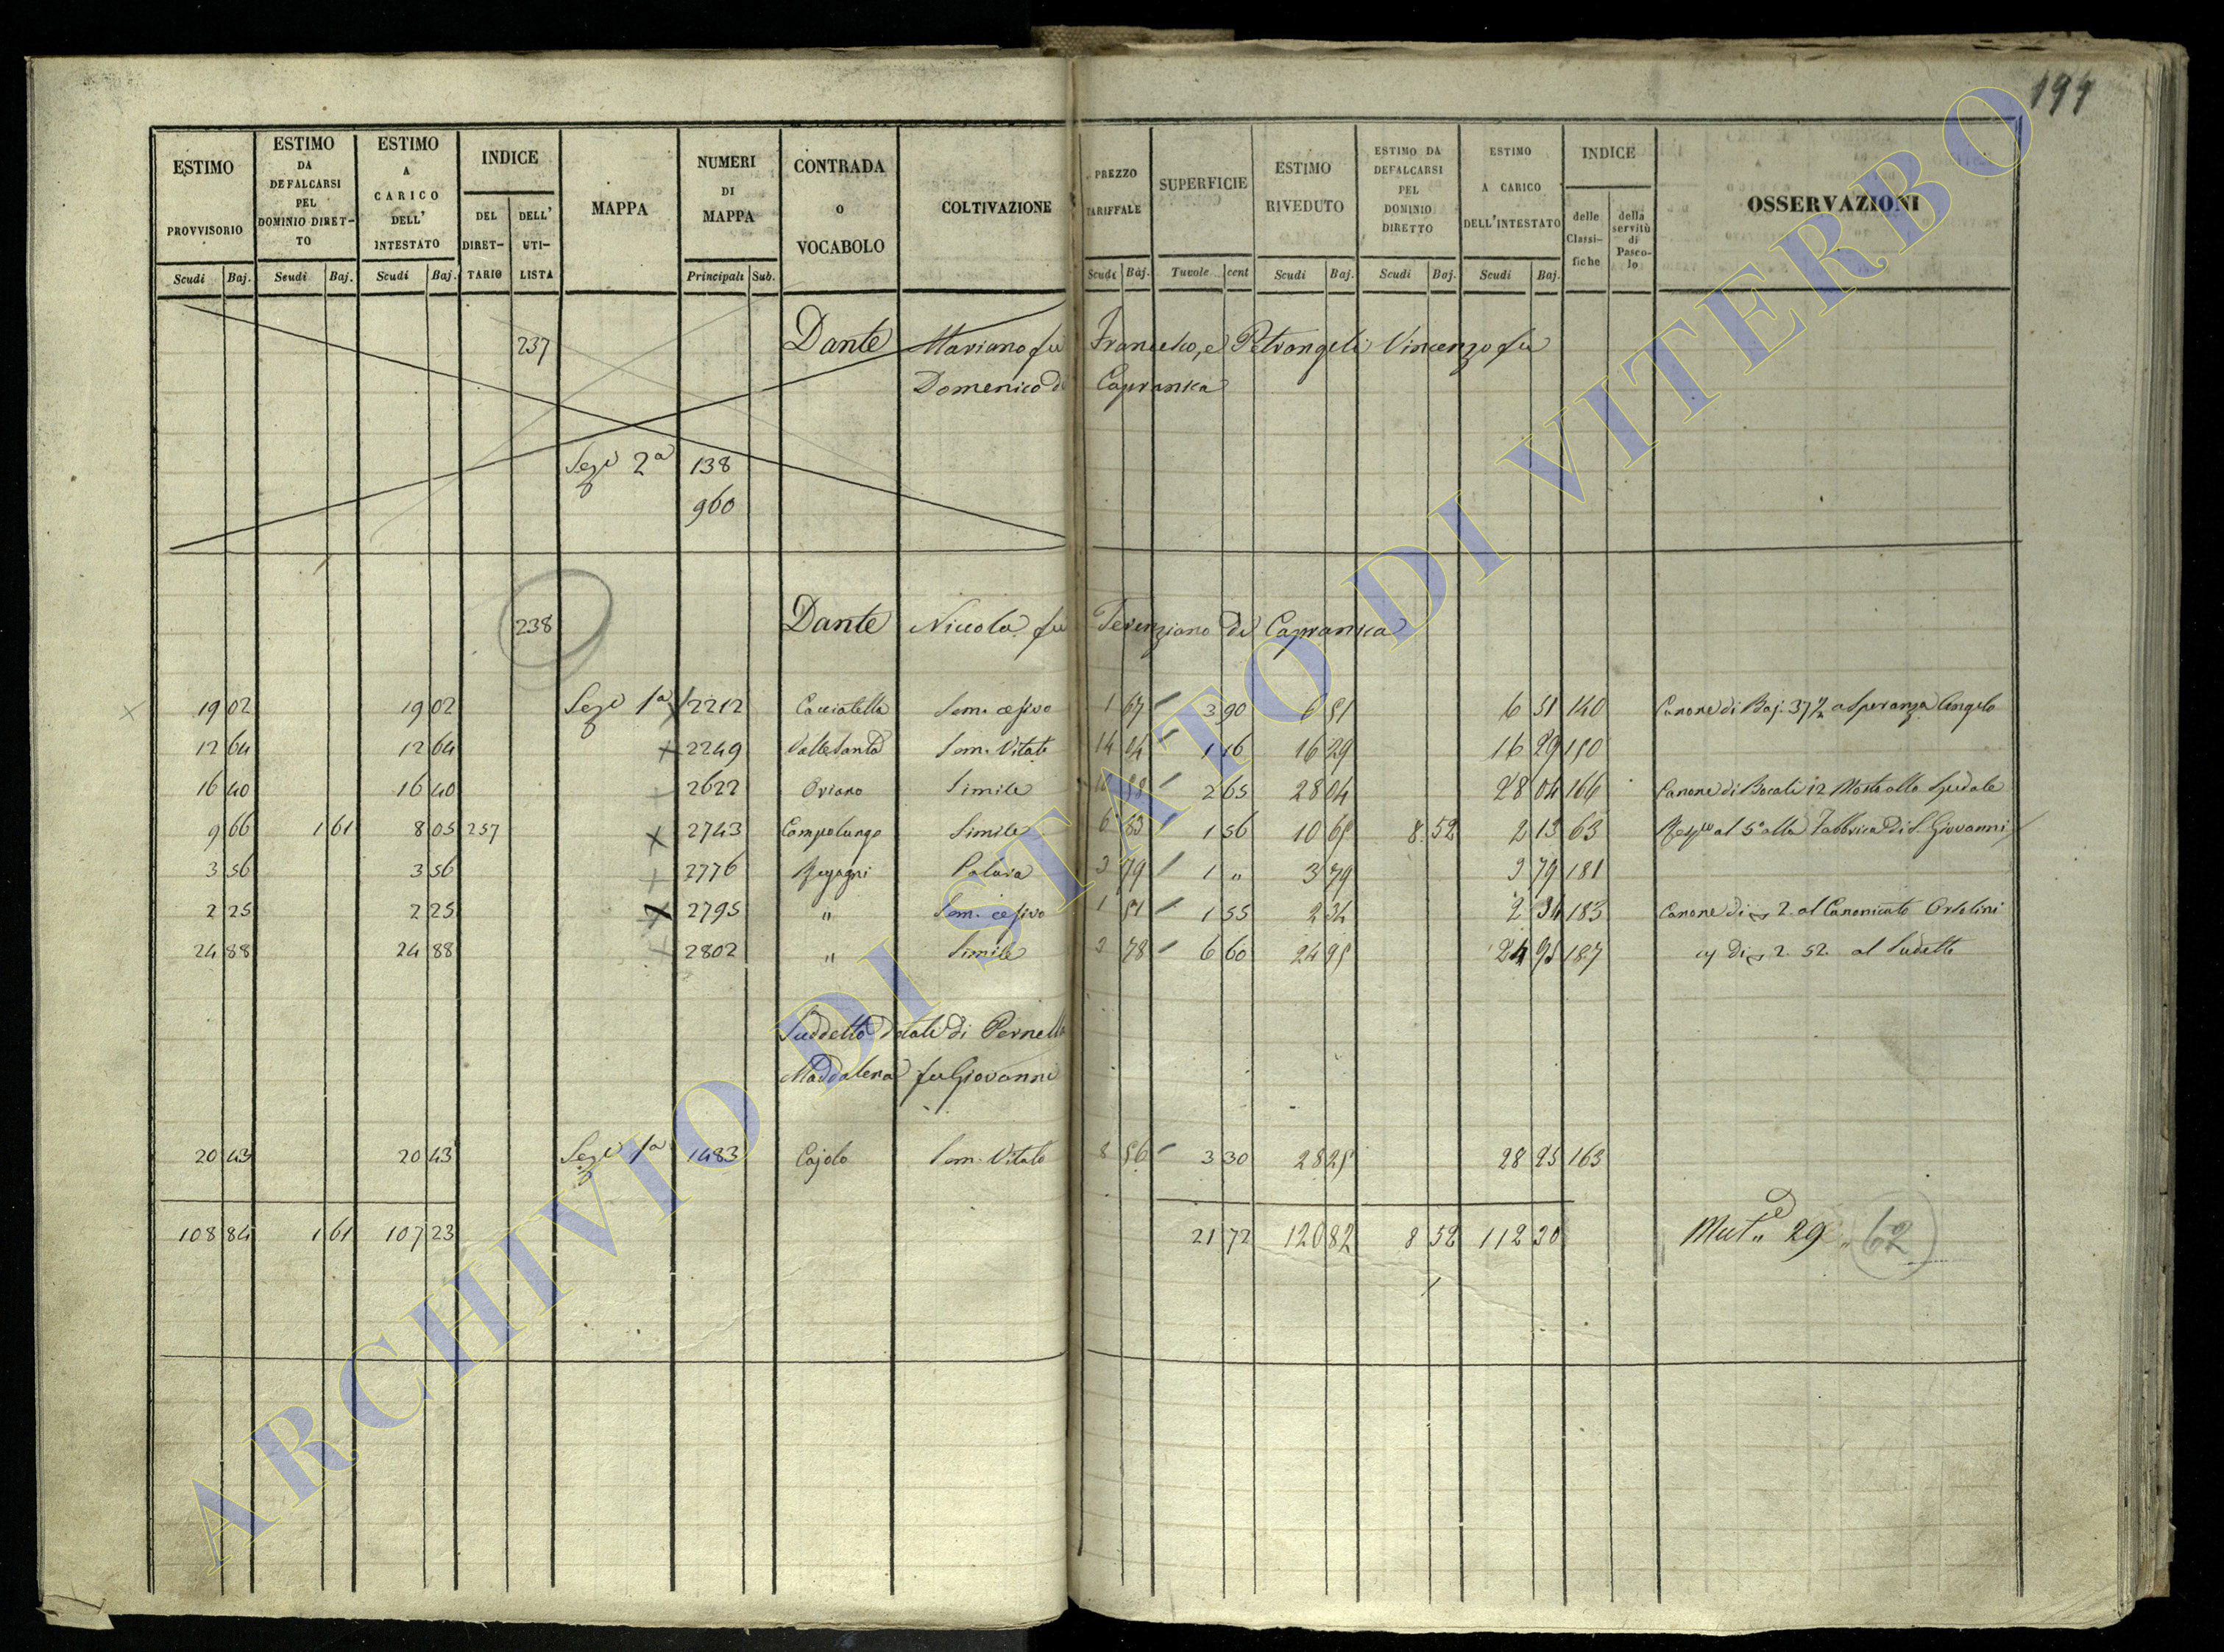 194
ESTIMO PROVVISORIO Scudi Baj.
ESTIMO DA DEFALCARSI PEL DOMINIO DIRETTO Scudi Baj.
ESTIMO A CARICO DELL' INTESTATO Scudi Baj.
INDICE DEL DIRETTARIO DELL' UTILISTA
MAPPA
NUMERI DI MAPPA Principali Sub.
CONTRADA o VOCABOLO
COLTIVAZIONE
PREZZO TARIFFALE Scudi Baj.
SUPERFICIE Tavole cent
ESTIMO RIVEDUTO Scudi Baj.
ESTIMO DA DEFALCARSI PEL DOMINIO DIRETTO Scudi Baj.
ESTIMO A CARICO DELL'INTESTATO Scudi Baj.
INDICE delle Classifiche della servitù di Pascolo
OSSERVAZIONI
237 Dante Mariano fu Francesco, e Petrangeli Vincenzo fu
Domenico di Capranica
Sezi 2a 138
960
238 Dante Niccola fu Terenziano di Capranica
19 02 19 02 Sezi 1a 2212 Cacciatella Sem. cesivo 1 67 3 90 6 51 6 51 140 Canone di Baj. 37 ½ a Speranza Angelo
12 64 12 64 2249 Valle Santa Sem. Vitato 14 04 1 16 16 29 16 29 150
16 40 16 40 2622 Oriano Simile 10 58 2 65 28 04 28 04 166 Canone di Bocali 12 Mosto allo Spedale
9 66 1 61 8 05 257 2743 Campolungo Simile 6 83 1 56 10 65 8 52 2 13 63 al 5o alla Fabbrica di S. Giovanni
3 56 3 56 2776 Palaria 3 79 1 " 3 79 3 79 181
2 25 2 25 2795 " Sem. cesivo 1 51 1 55 2 34 2 34 183 Canone di 2. al Canonicato Ortolini
24 88 24 88 2802 " Simile 3 78 6 60 24 95 24 95 187 di 2. 52. al Sudetto
Suddetto dotale di Pernella
Maddalena fu Giovanni
20 43 20 43 Sezi 1a 1483 Cajolo Sem. Vitato 8 56 3 30 28 25 28 25 163
108 84 1 61 107 23 21 72 120 82 8 52 112 30 Mut.e 29 62
ARCHIVIO DI STATO DI VITERBO